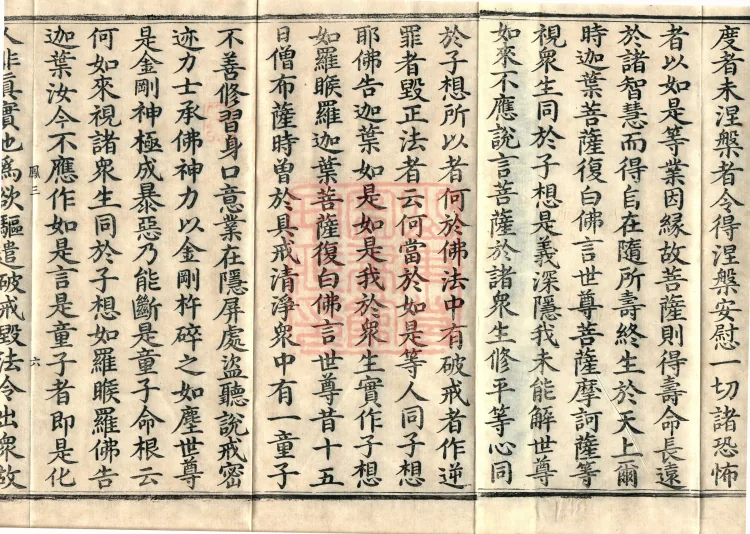 度者未涅槃者令得涅槃安慰一切諸恐怖
者以如是等業因緣故菩薩則得壽命長遠
於諸智慧而得自在隨所壽終生於天上爾
時迦葉菩薩復白佛言世尊菩薩摩訶薩等
視衆生同於子想是義深隱我未能解世尊
如來不應說言菩薩於諸衆生修平等心同
於子想所以者何於佛法中有破戒者作逆
罪者毀正法者云何當於如是等人同子想
耶佛告迦葉如是如是我於衆生實作子想
如羅睺羅迦葉菩薩復白佛言世尊昔十五
日僧布薩時曾於具戒清淨衆中有一童子
不善修習身口意業在隱屏處盜聽說戒密
迹力士承佛神力以金剛杵碎之如塵世尊
是金剛神極成暴惡乃能斷是童子命根云
何如來視諸衆生同於子想如羅睺羅佛告
迦葉汝今不應作如是言是童子者即是化
鳳三 六
人非眞實也爲欲驅遣破戒毀法令出衆故